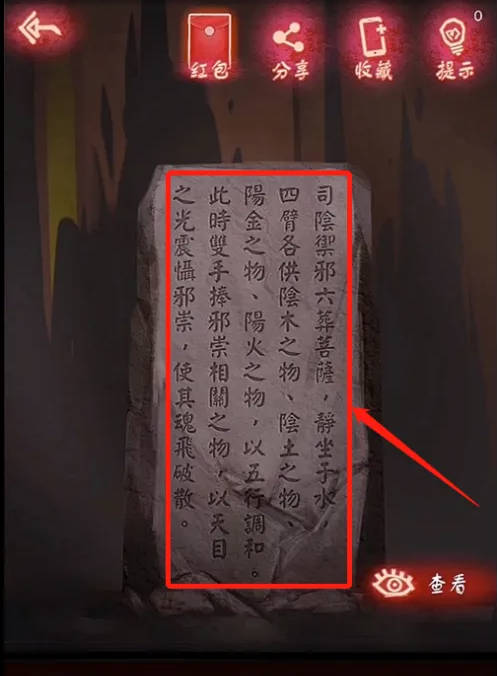 0
红包
分享
收藏
提示
司陰禦邪六葬菩薩，靜坐于水，
四臂各供陰木之物、陰土之物、
陽金之物、陽火之物，以五行調和。
此時雙手捧邪祟相關之物，以天目
之光震懾邪祟，使其魂飛破散。
查看